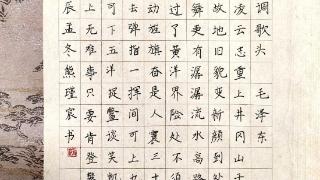 调歌头毛泽东
凌云志重上井冈山千
故地旧貌变新颜到处
舞更有潺潺流水高路
过了黄洋界险处不须
动旌旗奋是人寰三十
去弹指一挥间可上九
可下五洋捉鳖谈笑凯
上无难事只要肯登攀
辰孟冬熊瑾宸书